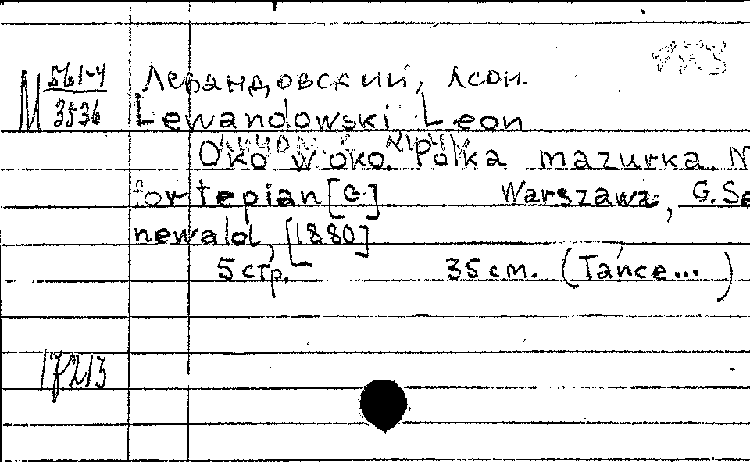 М 561-4
3536
Левандовский, Леон.
Lewandowski Leon
Oko w oko. Polka mazurka. N
fortepian [G.] Warszawa, G. Se
newald, [1880]
5 стр. 35 см. (Tańce...)
17213